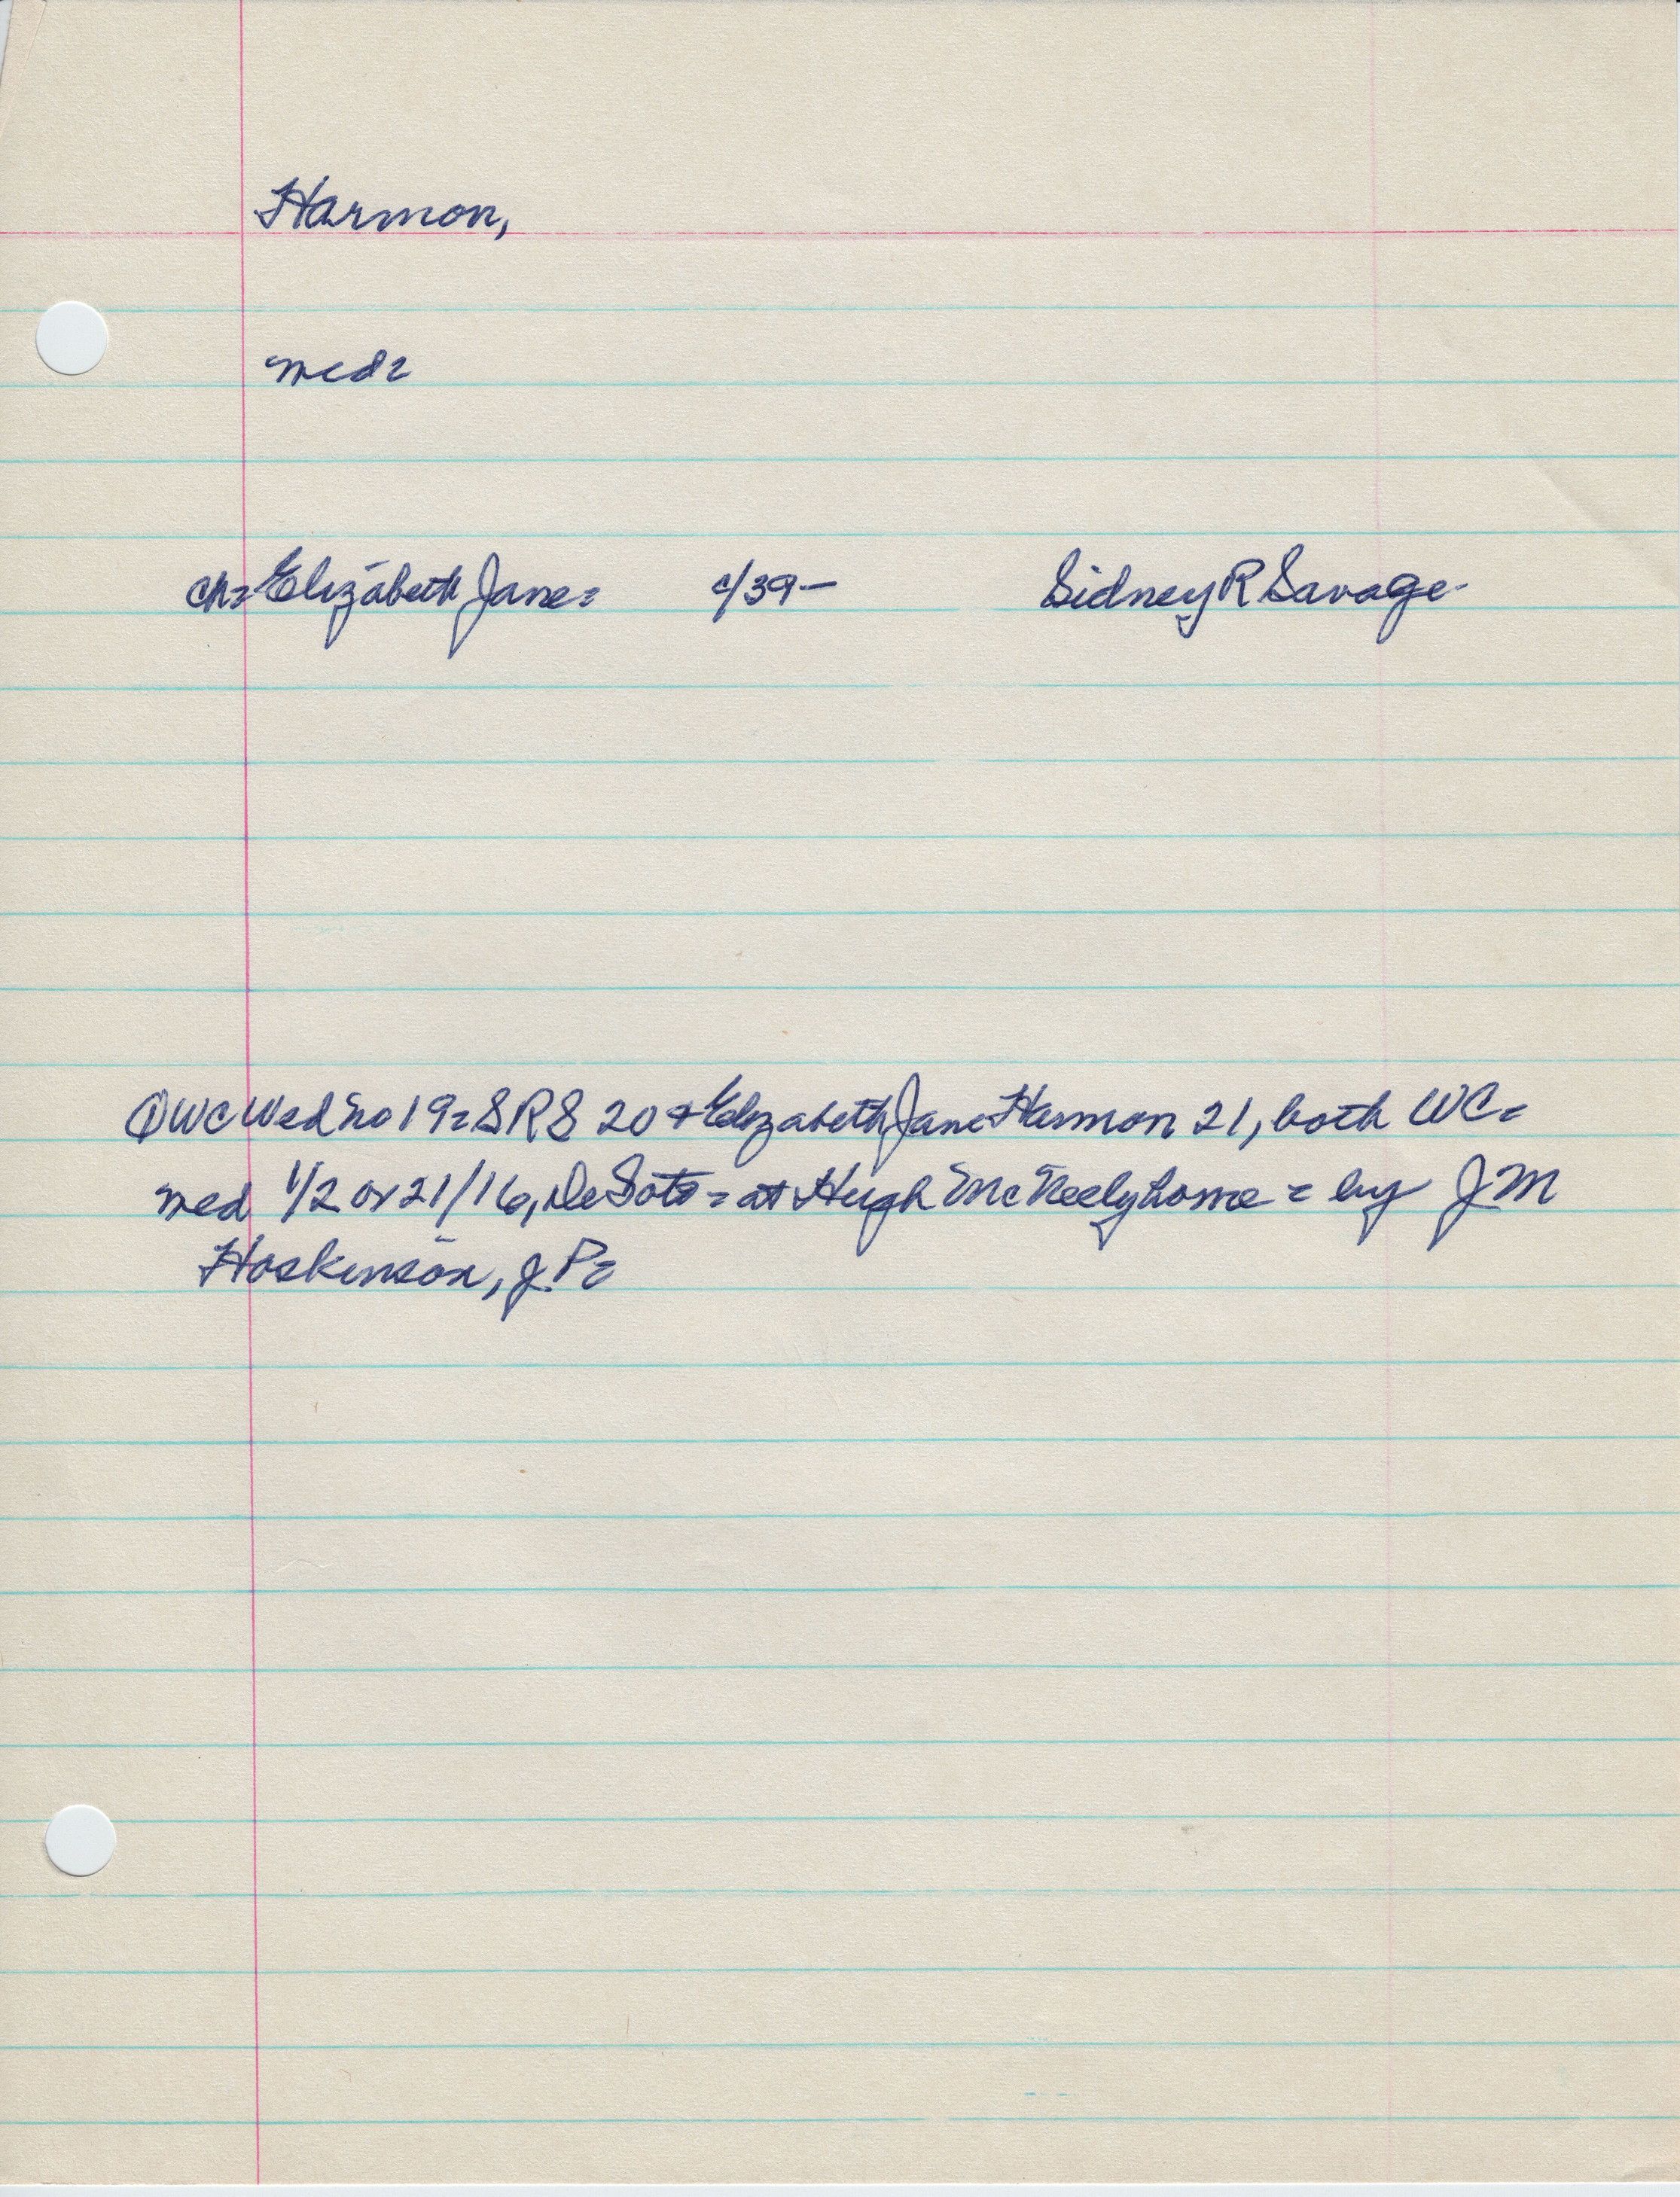 Harmon,
med=
ch= Elizabeth Jane= c/39— Sidney R Savage-
① WC Wed no 19= SRS 20 + Elizabeth Jane Harmon 21, both WC=
med 1/2 or 21/16, DeSoto = at Hugh McNeely home = by J M
Hoskinson, J.P=